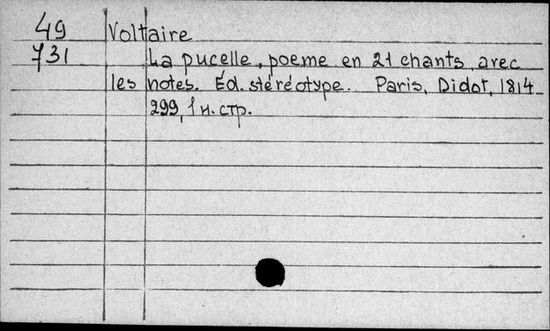 49 Voltaire
731 La pucelle, poeme en 21 chants, avec
les notes. Éd. stéréotype. Paris, Didot, 1814
299, 1 н. стр.